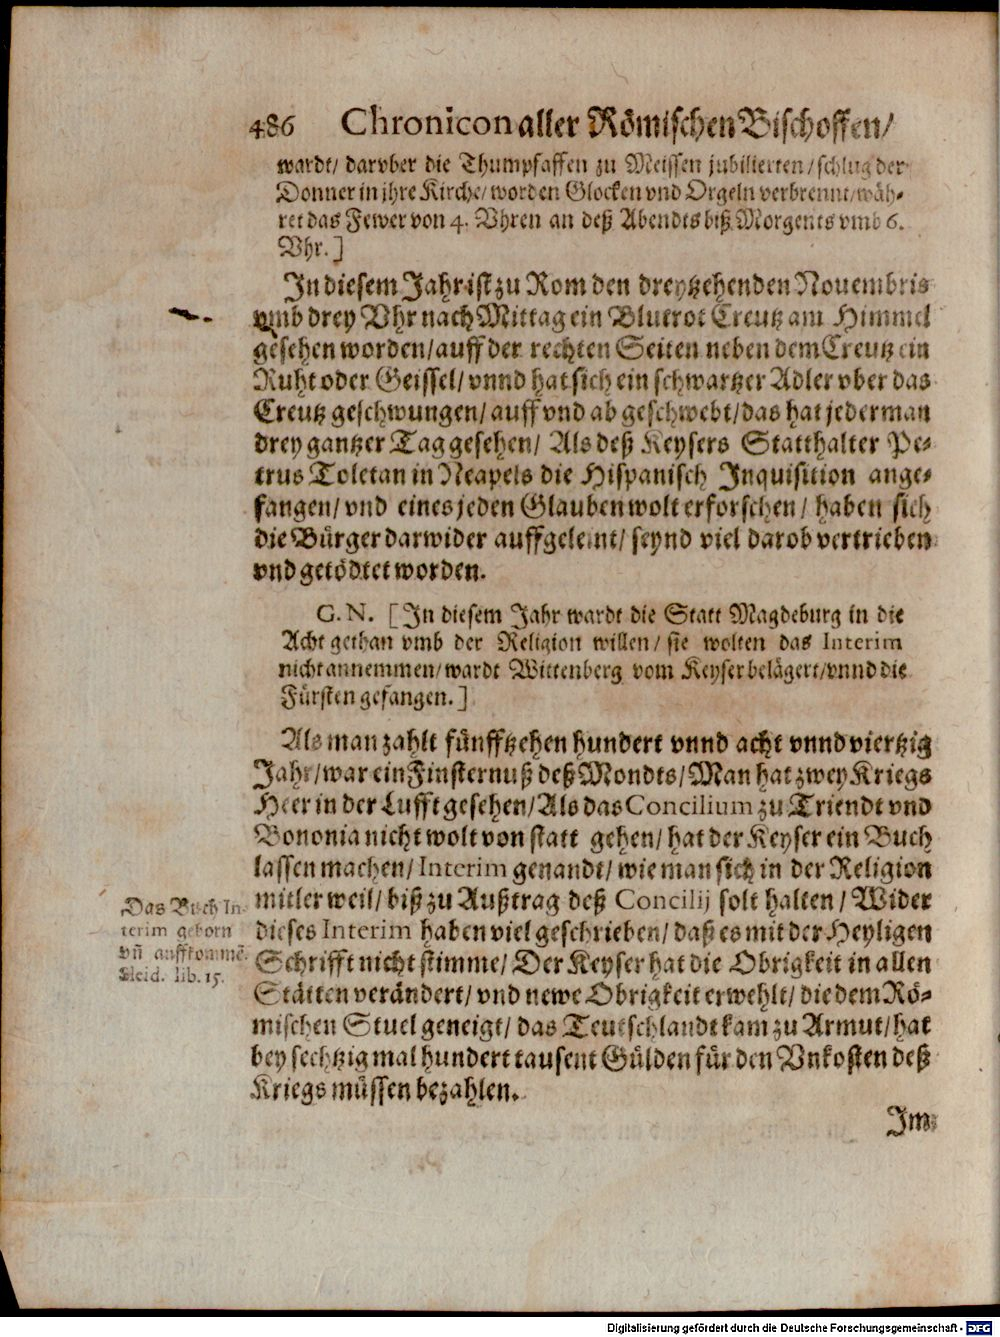 486 Chronicon aller Römischen Bischoffen/
wardt/ darvber die Thumpfaffen zu Meissen jubilierten/ schlug der
Donner in ihre Kirche/ worden Glocken vnd Orgeln verbrennt/ wäh-
ret das Fewer von 4. Vhren an deß Abendts biß Morgents vmb 6.
Vhr.]
In diesem Jahr ist zu Rom den dreytzehenden Nouembris
vmb drey Vhr nach Mittag ein Blutrot Creutz am Himmel
gesehen worden/ auff der rechten Seiten neben dem Creutz ein
Ruht oder Geissel/ vnnd hat sich ein schwartzer Adler vber das
Creutz geschwungen/ auff vnd ab geschwebt/ das hat jederman
drey gantzer Tag gesehen/ Als deß Keysers Statthalter Pe-
trus Toletan in Neapels die Hispanisch Inquisition ange-
fangen/ vnd eines jeden Glauben wolt erforschen/ haben sich
die Bürger darwider auffgeleint/ seynd viel darob vertrieben
vnd getödtet worden.
G. N. [In diesem Jahr wardt die Statt Magdeburg in die
Acht gethan vmb der Religion willen/ sie wolten das Interim
nicht annemmen/ wardt Wittenberg vom Keyser belägert/ vnnd die
Fürsten gefangen.]
Als man zahlt fünfftzehen hundert vnnd acht vnnd viertzig
Jahr/ war ein Finsternuß deß Mondts/ Man hat zwey Kriegs
Heer in der Lufft gesehen/ Als das Concilium zu Triendt vnd
Bononia nicht wolt von statt gehen/ hat der Keyser ein Buch
lassen machen/ Interim genandt/ wie man sich in der Religion
mitler weil/ biß zu Außtrag deß Concilij solt halten/ Wider
dieses Interim haben viel geschrieben/ daß es mit der Heyligen
Schrifft nicht stimme/ Der Keyser hat die Obrigkeit in allen
Stätten verändert/ vnd newe Obrigkeit erwehlt/ die dem Rö-
mischen Stuel geneigt/ das Teutschlandt kam zu Armut/ hat
bey sechtzig mal hundert tausent Gülden für den Vnkosten deß
Kriegs müssen bezahlen.
Das Buch In-
terim geborn
vñ auffkommē.
Sleid. lib. 15.
Im
Digitalisierung gefördert durch die Deutsche Forschungsgemeinschaft - DFG